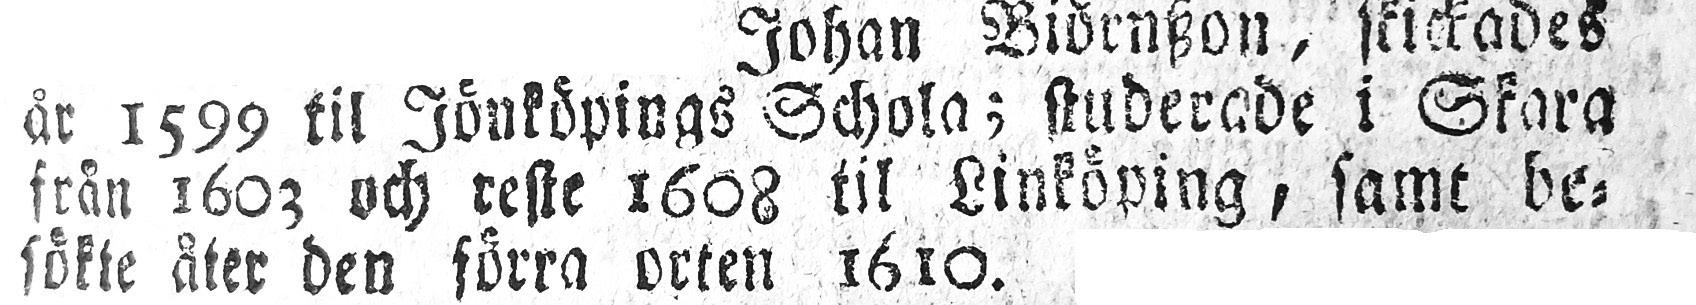 Johan Biörnßon, skickades
år 1599 til Jönköpings Schola; studerade i Skara
från 1603 och reste 1608 til Linköping, samt be-
sökte åter den förra orten 1610.